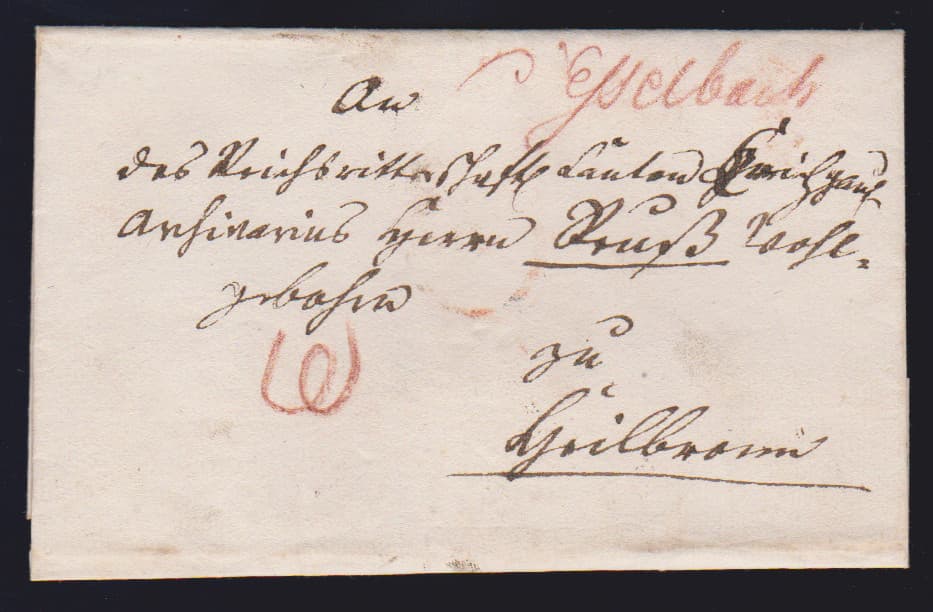 d'Esselbach
An
des Reichsritterschafts Canton Kraichgau
Archivarius Herrn Reuß Wohl-
gebohrn
zu
Heilbronn